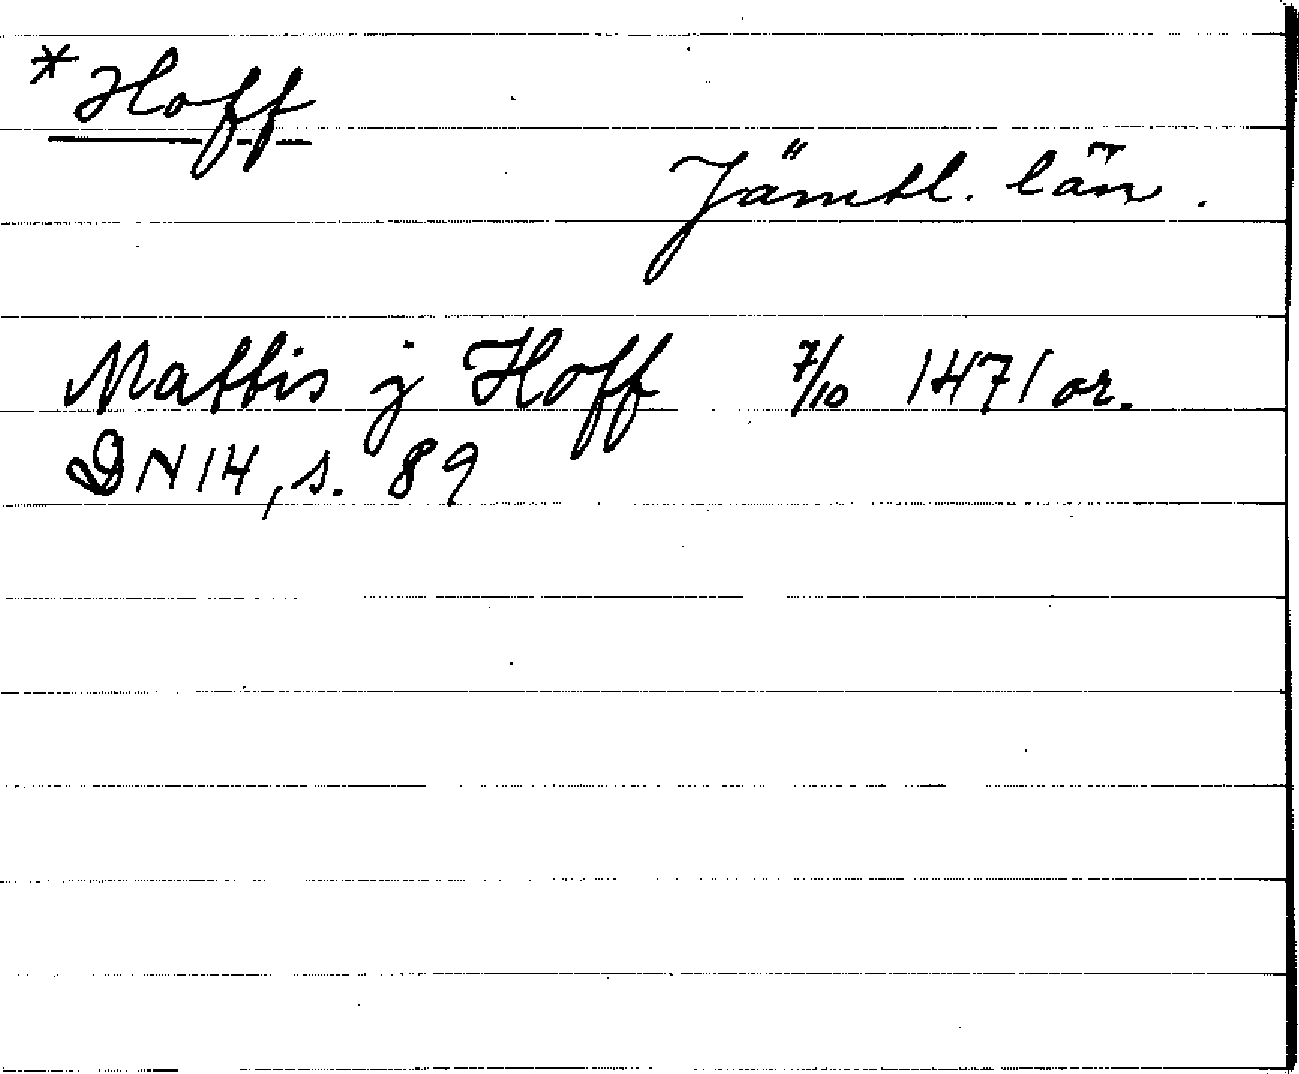 *Hoff
Jämtl. län.
Mattis j Hoff 7/10 1471 or.
DN 14, s. 89